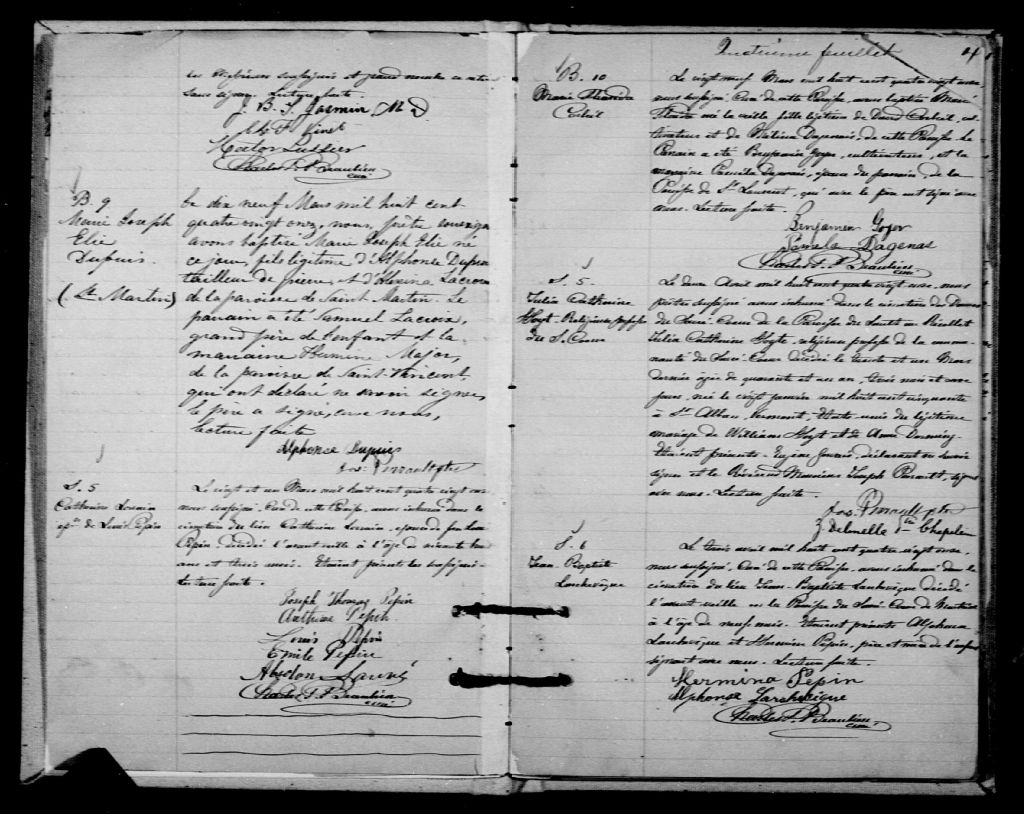 Lecture faite.
J. B. S. Jasmin M d
Hector Lussier
Charles P. Beaulieu
curé
B. 9
Marie Joseph
Elie
Dupuis.
(St Martin)
Le dix neuf Mars mil huit cent
quatre vingt onze, nous, prêtre soussigné
avons baptisé Marie Joseph Elie né
ce jour, fils légitime d'Alphonse Dupuis
tailleur de pierre, et d'Alexina Lacroix
de la paroisse de Saint Martin. Le
parrain a été Samuel Lacroix,
grand père de l'enfant et la
marraine Hermine Major,
de la paroisse de Saint-Vincent,
qui ont déclaré ne savoir signer,
le père a signé, avec nous,
lecture faite
Alphonse Dupuis
Jos: Perrault ptre
S. 5
Catherine
de Louis Pépin
Le vingt et un Mars mil huit cent quatre vingt onze
nous soussigné, Curé de cette Paroisse, avons inhumé dans le
cimetière du lieu Catherine, épouse de feu Louis
Pépin, décédée l'avant veille à l'âge de soixante
ans et trois mois. Etaient présents les soussignés
Lecture faite.
Joseph Thomas Pépin
Anthime Pépin
Louis Pépin
Emile Pépin
Absolon Sauvé
Charles P. Beaulieu
curé
Quatrième feuillet 4
B. 10
Marie
Le vingt neuf Mars mil huit cent quatre vingt onze
nous soussigné Curé de cette Paroisse, avons baptisé Marie
née la veille fille légitime de David, cul-
tivateur et de Dagenais, de cette Paroisse. Le
Parrain a été Benjamin Goyer, cultivateur, et la
marraine Paméla Dagenais, épouse du parrain, de la
Paroisse de St Laurent, qui avec le père ont signé avec
nous. Lecture faite.
Benjamen Goyer
Pamela Dagenas
Charles P. Beaulieu
curé
S. 5
Julia Catherine
Hoyt. Religieuse professe
du S. Coeur
Le deux Avril mil huit cent quatre vingt onze, nous
prêtre soussigné avons inhumé dans le cimetière des Dames
du Sacré Coeur de la Paroisse du Sault au Récollet
Julia Catherine Hoyt, religieuse professe de la commu-
nauté du Sacré Coeur décédée le trente et un Mars
dernier âgée de quarante et un an, trois mois et onze
jours, née le vingt janvier mil huit cent cinquante
à St Alban, Vermont, Etats-unis du légitime
mariage de William Hoyt et de Anne Deming.
Etaient présents Eugène, déclarant ne savoir
signer et le Révérend Monsieur Joseph Perrault, signé
avec nous. Lecture faite.
Jos Perrault ptr
Z. Delinelle ptre Chapelain
S. 6
Jean Baptiste
Larchevêque
Le trois avril mil huit cent quatre vingt onze,
nous soussigné, Curé de cette Paroisse, avons inhumé dans le
cimetière du lieu Jean-Baptiste Larchevêque décédé
l'avant veille en la Paroisse du Sacré Coeur de Montréal
à l'âge de neuf mois. Etaient présents Alphonse
Larchevêque et Hermina Pépin, père et mère de l'enfant
signant avec nous. Lecture faite.
Hermina Pépin
Alphonse Larchevêque
Charles P. Beaulieu
curé